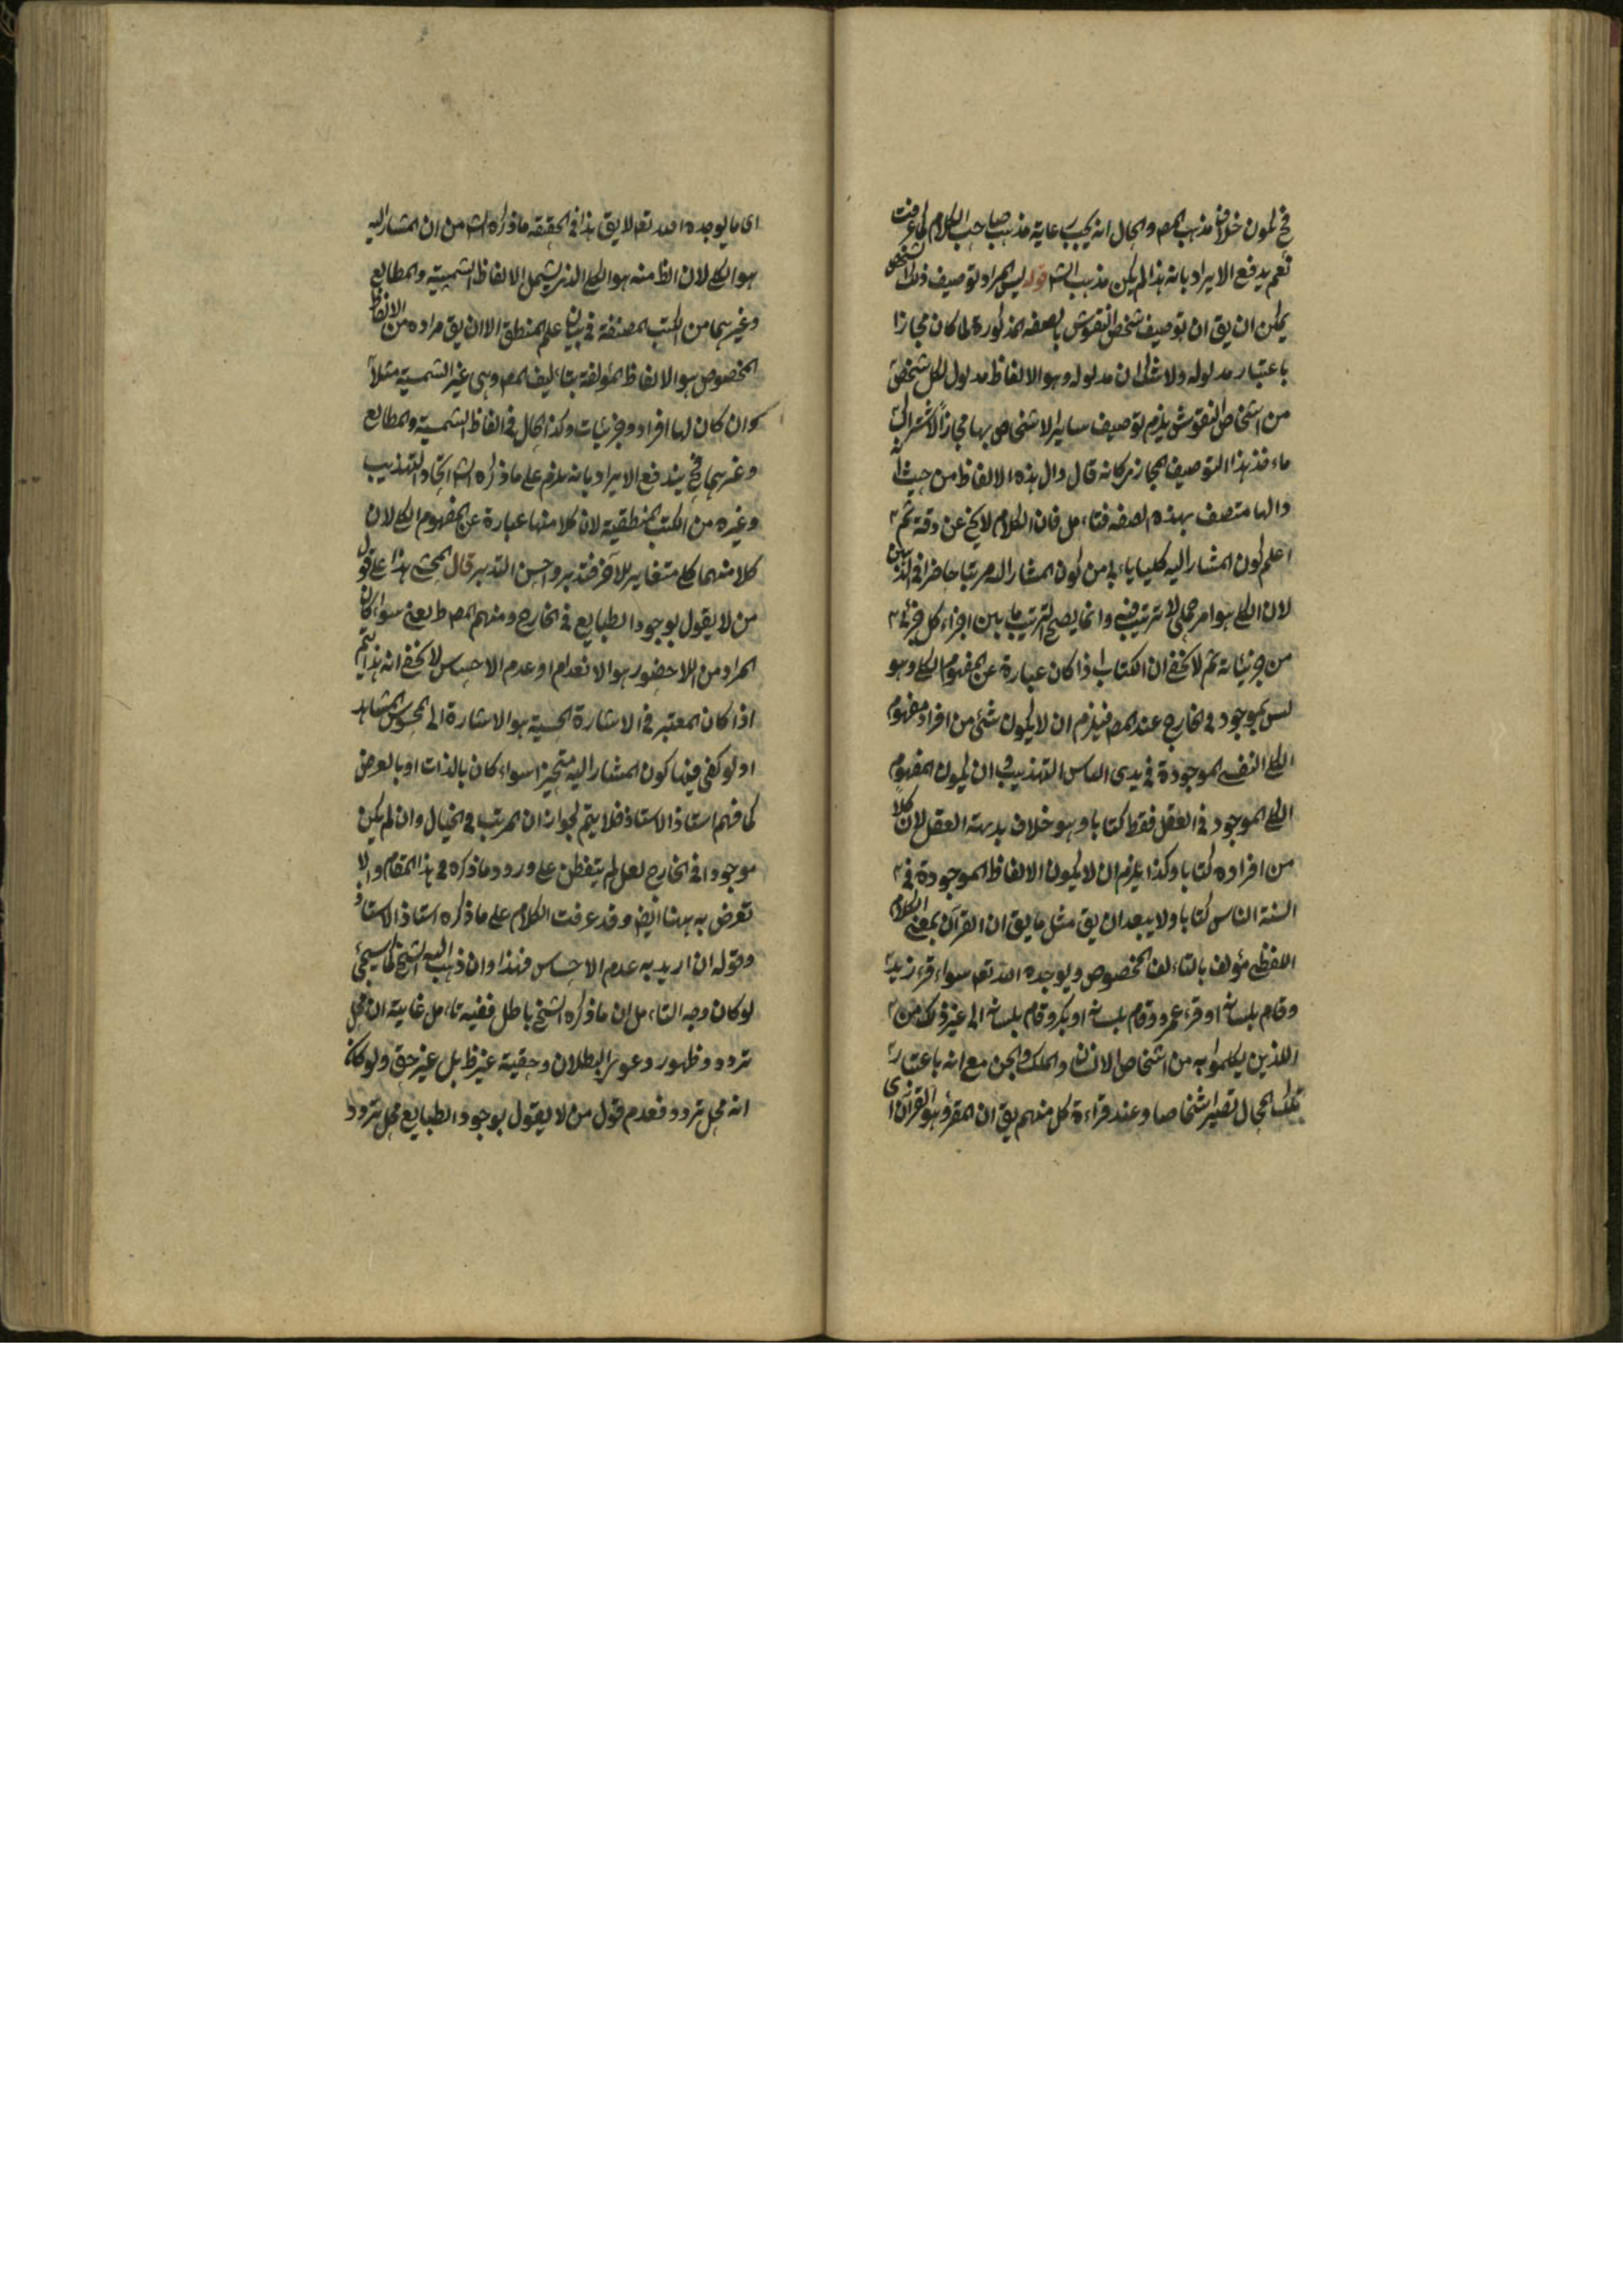 فح لكون خلاف مذهب المص والحال انه يجب رعاية مذهب صاحب الكلام كما عرفت
نعم يدفع الايراد بانه هذا لم يكن مذهب الش قوله ليس المراد توصيف ذلك الشخص
يمكن ان يق ان توصيف شخص النقوش بالصفه المذكورة لما كان مجازا
باعتبار مدلوله ولا شك ان مدلوله وهو الالفاظ مدلول لكل شخص
من اشخاص النقوش يلزم توصيف ساير الاشخاص بها مجازا لاشتراك
ماخذ هذا التوصيف المجازي كانه قال دال هذه الالفاظ من حيث انه
دالها متصف بهذه الصفه فتامل فان الكلام لا يخ عن دقة ثم
اعلم كون المشار اليه كليا ياباه من كون المشار اليه مرتبا حاضرا في الذهن
لان الكلي هو امر جملي لا ترتيب فيه وانما يصح الترتيب ما بين اجزاء كل جزئي
من جزئياته ثم لا يخفى ان الكتاب اذا كان عبارة عن المفهوم الكلي وهو
ليس بموجود في الخارج عند المص فيلزم ان لا يكون شئ من افراد مفهوم
الكلي النفسي الموجودة في يدي الناس التهذيب وان يكون المفهوم
الكلي الموجود في العقل فقط كتابا وهو خلاف بديهة العقل لان كلا
من افراده كتابا وكذا يلزم ان لا يكون الالفاظ الموجودة في
السنة الناس كتابا ولا يبعد ان يق مثل ما يق ان القرآن بمعنى الكلام
اللفظي مؤلف بالتاليف المخصوص ويوجده الله تعم سواء قرء زيد
وقام بلسانه او قرء عمرو وقام بلسانه او بكر وقام بلسانه الى غير ذلك من
اللذين يكلموا به من اشخاص الانسان والملك والجن مع انه باعتبار
تلك المحال تصير اشخاصا وعند قراءة كل منهم يق ان المقرؤ هو القرآن اي
اى ما يوجده الله تعم لا يق هذا في الحقيقه ما ذكره الش من ان المشار اليه
هو الكلي لان الظ منه هو الكلي الذي يشمل الالفاظ الشمسية والمطالع
وغيرهما من الكتب المصنفة في بيان علم المنطق الا ان يق مراده من الالفاظ
المخصوص هو الالفاظ المؤلفة بتاليف المص وهى غير الشمسية مثلا
وان كان لها افراد وجزئيات وكذا الحال في الفاظ الشمسية والمطالع
وغيرهما فح يندفع الايراد بانه يلزم على ما ذكره الش اتحاد التهذيب
وغيره من الكتب المنطقية لان كلا منها عبارة عن المفهوم الكلي لان
كلا منهما كلي متغاير للآخر فتدبر واحسن التدبير قال المحشي هذا على قول
من لا يقول بوجود الطبايع في الخارج ومنهم المص ط يعنى سواء كان
المراد من اللاحضور هو الانعدام او عدم الاحساس لا يخفى انه هذا يتم
اذا كان المعتبر في الاشارة الحسية هو الاشارة الى المحسوس المشاهد
او لو كفى فيها كون المشار اليه متحيزا سواء كان بالذات او بالعرض
كما فهم استاذ الاستاذ فلا يتم لجواز ان المرتب في الخيال وان لم يكن
موجودا في الخارج لعل لم يتفطن على ورود ما ذكره في هذا المقام والا
تعرض به ههنا ايض وقد عرفت الكلام على ما ذكره استاذ الاستاذ
وقوله ان اريد به عدم الاحساس فهذا وان ذهب اليه الشيخ كما سيجئ
لو كان وجه التامل ان ما ذكره الشيخ باطل ففيه تامل غايته ان محل
تردد وظهور دعوى البطلان وحقية غير ظ بل غير حق ولو كان
انه محل تردد فعدم قول من لا يقول بوجود الطبايع محل تردد